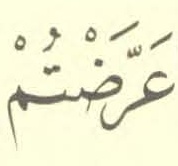 عَرَّضْتُمْ